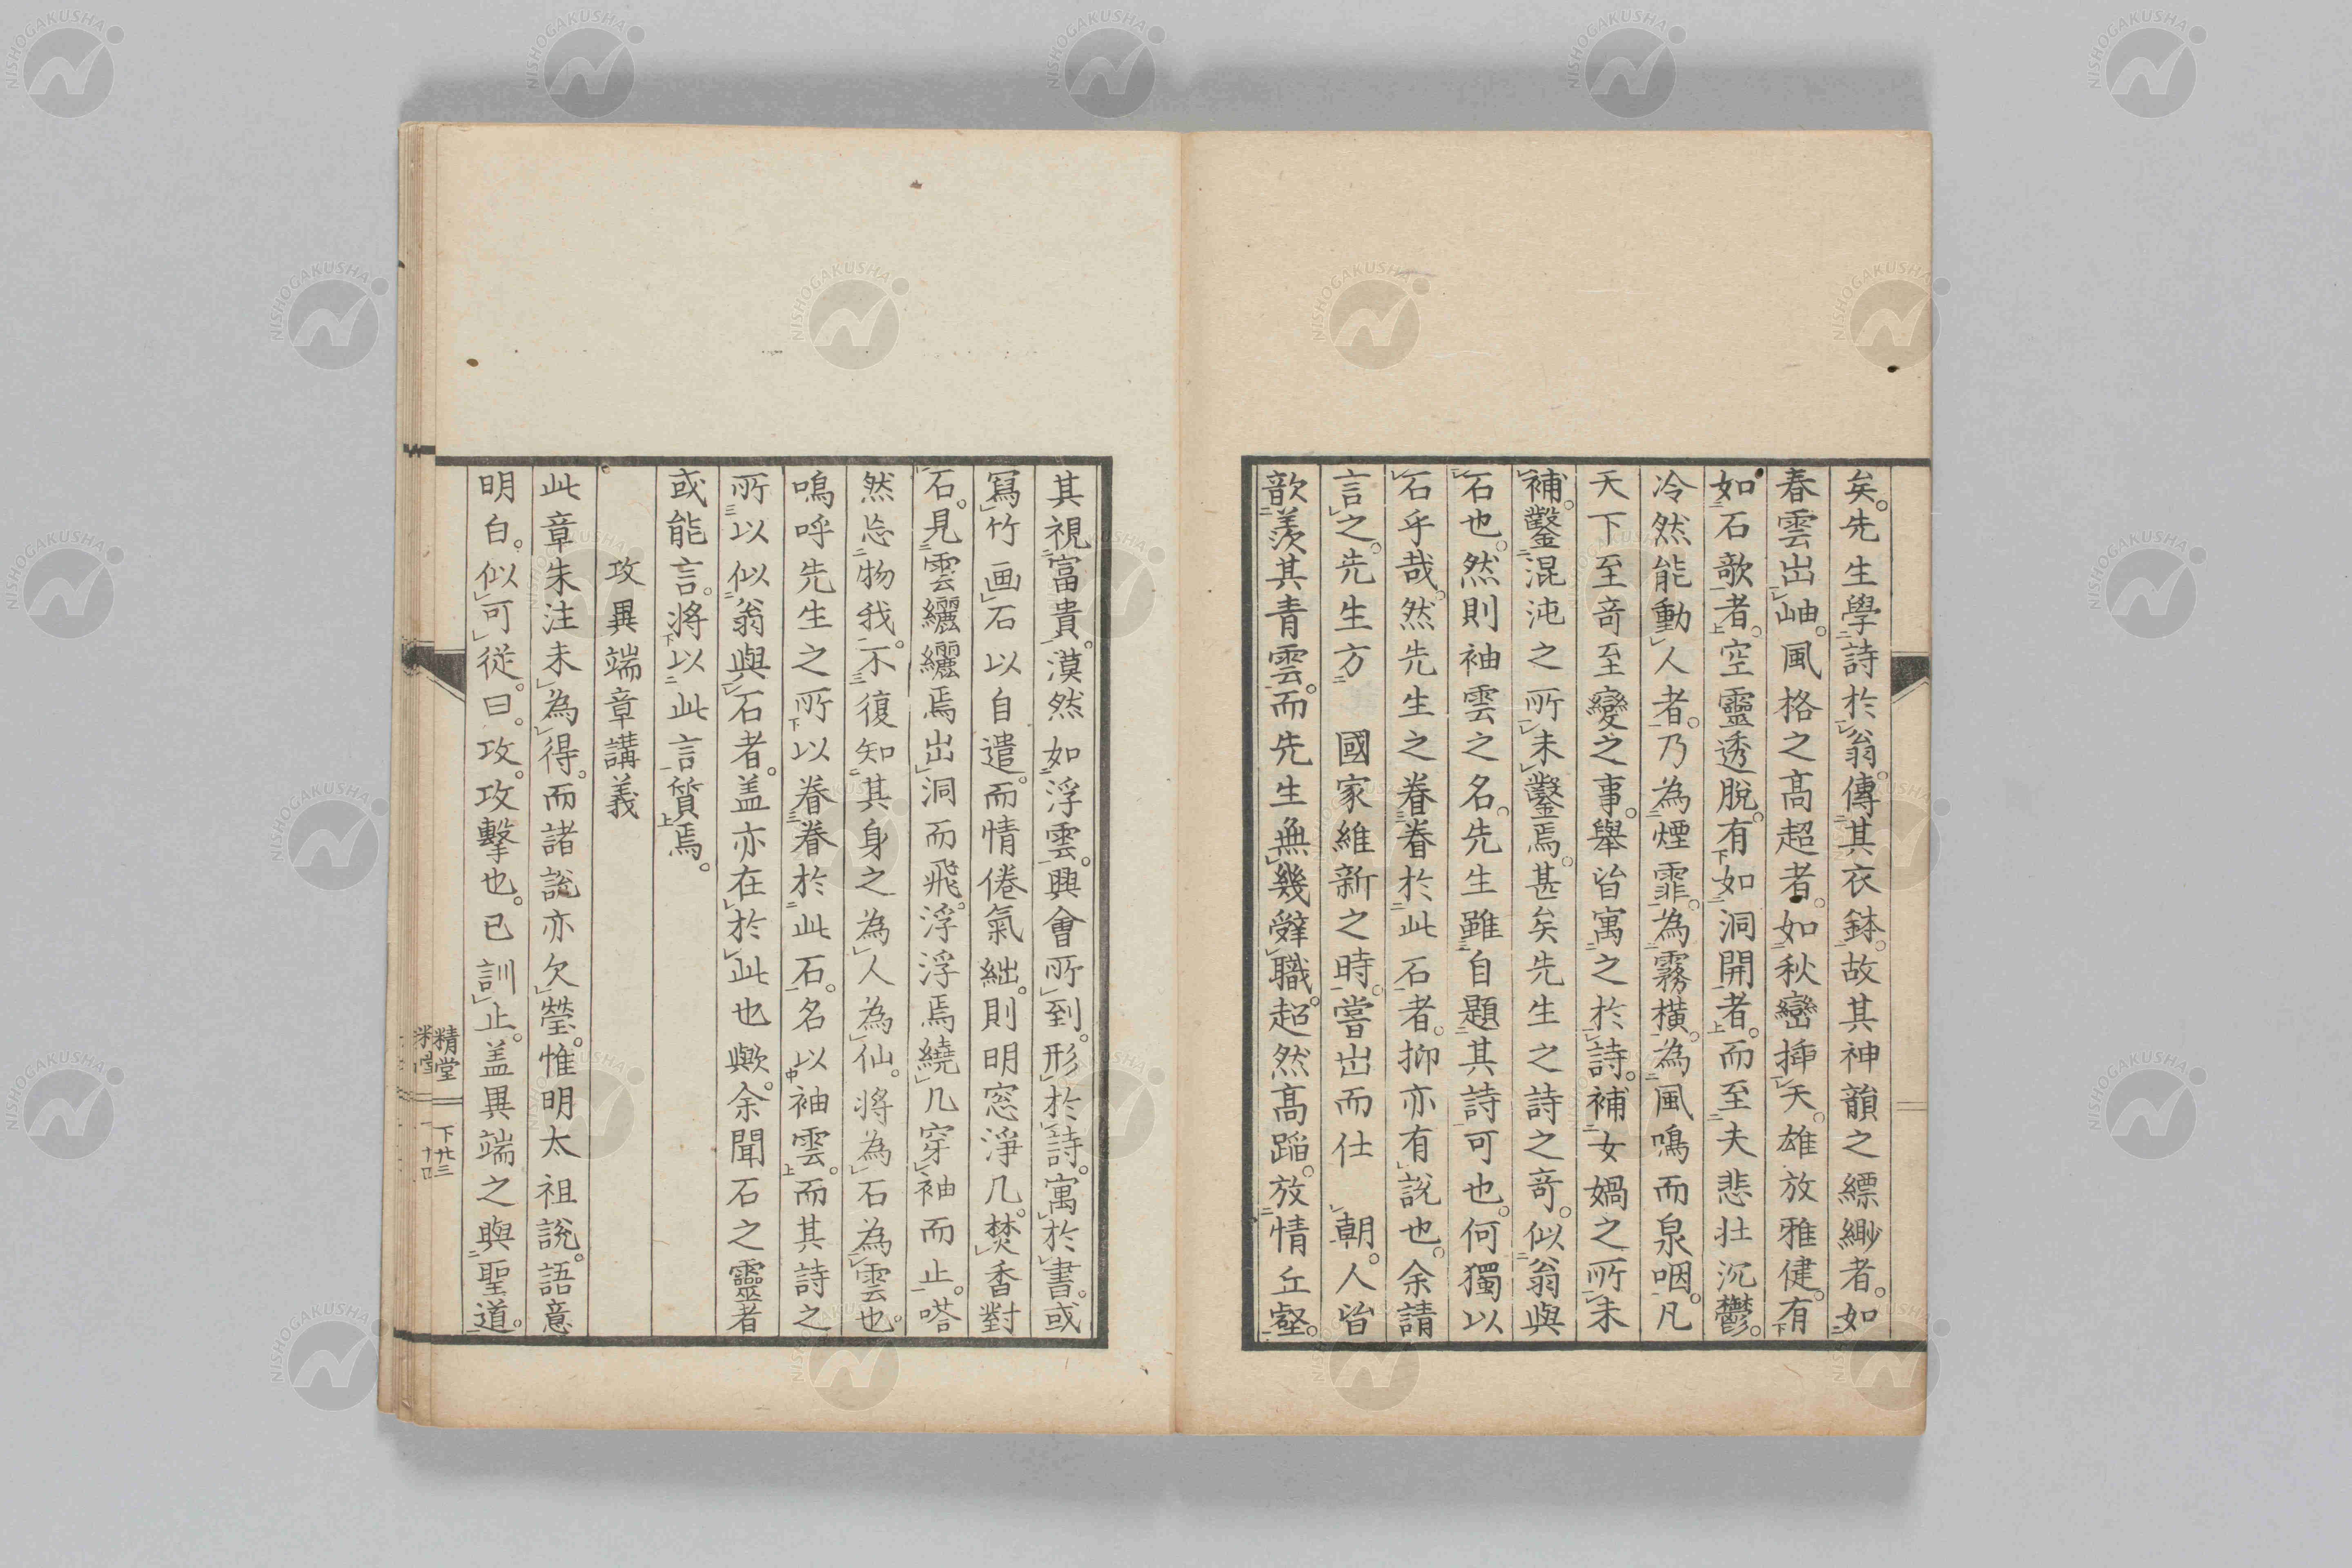 矣。先生學詩於翁。傳其衣鉢。故其神韻之縹緲者。如
春雲出岫。風格之髙超者。如秋巒揷天。雄放雅健。有
如石歌者。空靈透脫。有如洞開者。而至夫悲壮沉鬱。
冷然能動人者。乃為煙霏。為霧橫。為風鳴而泉咽。凡
天下至竒至變之事。舉皆寓之於詩。補女媧之所未
補。鑿混沌之所未鑿焉。甚矣先生之詩之竒。似翁與
石也。然則袖雲之名。先生雖自題其詩可也。何獨以
石乎哉。然先生之眷眷於此石者。抑亦有說也。余請
言之。先生方　國家維新之時。嘗出而仕　朝。人皆
歆羨其青雲。而先生無幾辤職。超然髙蹈。放情丘壑。
其視富貴。漠然如浮雲。興會所到。形於詩。寓於書。或
寫竹画石以自遣。而情倦氣絀。則明窓淨几。焚香對
石。見雲纚纚焉出洞而飛。浮浮焉繞几穿袖而止。嗒
然忘物我。不復知其身之為人為仙。將為石為雲也。
鳴呼先生之所以眷眷於此石。名以袖雲。而其詩之
所以似翁與石者。盖亦在於此也歟。余聞石之靈者
或能言。將以此言質焉。
攻異端章講義
此章朱注未為得。而諸說亦欠瑩。惟明太祖說。語意
明白。似可從。曰。攻。攻擊也。已訓止。盖異端之與聖道。
精堂
下廿三